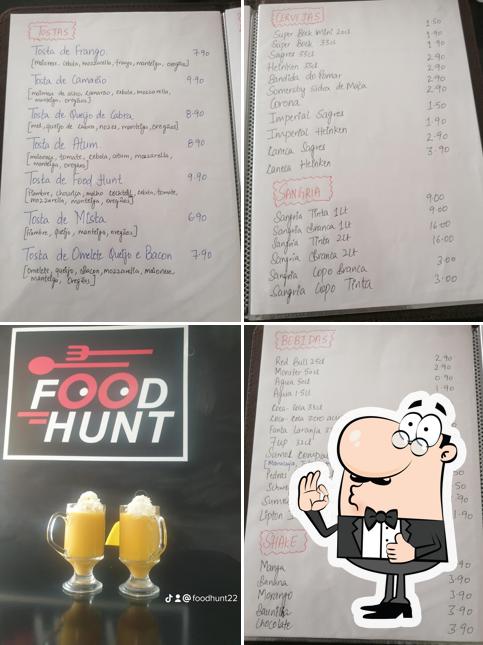 TOSTAS
Tosta de Frango 7.90
[Maionese, cebola, mozzarella, frango, manteiga, oregãos]
Tosta de Camarão 9.90
[molho de alho, Camarão, cebola, mozzarella,
manteiga, oregãos]
Tosta de Queijo de Cabra 8.90
[mel, queijo de Cabra, nozes, manteiga, oregãos]
Tosta de Atum 8.90
[maionese, tomate, cebola, atum, mozzarella,
manteiga, oregãos]
Tosta de Food Hunt 9.90
[Fiambre, chouriça, molho cocktail, cebola, tomate,
mozzarella, manteiga, oregãos]
Tosta de Mista 6.90
[Fiambre, queijo, manteiga, oregãos]
Tosta de Omelete Queijo e Bacon 7.90
[Omelete, queijo, Bacon, mozzarella, maionese,
manteiga, Oregãos]
CERVEJAS
Super Bock Mini 20cl 1.50
Super Bock 33cl 1.90
Sagres 33cl 1.90
Heinken 33cl 2.90
Bandida do Pomar 2.90
Somersby Sidra de Maça 2.90
Corona 2.90
Imperial Sagres 1.50
Imperial Heinken 1.90
Laneca Sagres 2.90
Laneca Heinken 3.90
SANGRIA
Sangria Tinta 1Lt 9.00
Sangria Branca 1Lt 9.00
Sangria Tinta 2Lt 16.00
Sangria Branca 2Lt 16.00
Sangria Copo Branca 3.00
Sangria Copo Tinta 3.00
FOOD
HUNT
@foodhunt22
BEBIDAS
Red Bull 25cl 2.90
Monster 50cl 2.90
Agua 50cl 0.90
Agua 1.5cl 1.90
Coca-Cola 33cl
Coca-Cola zero
Fanta Laranja
7up 33cl
Sumol
Pedras
Lipton 1.90
SHAKE
Manga
Banana 3.90
Morango 3.90
Baunilha 3.90
Chocolate 3.90